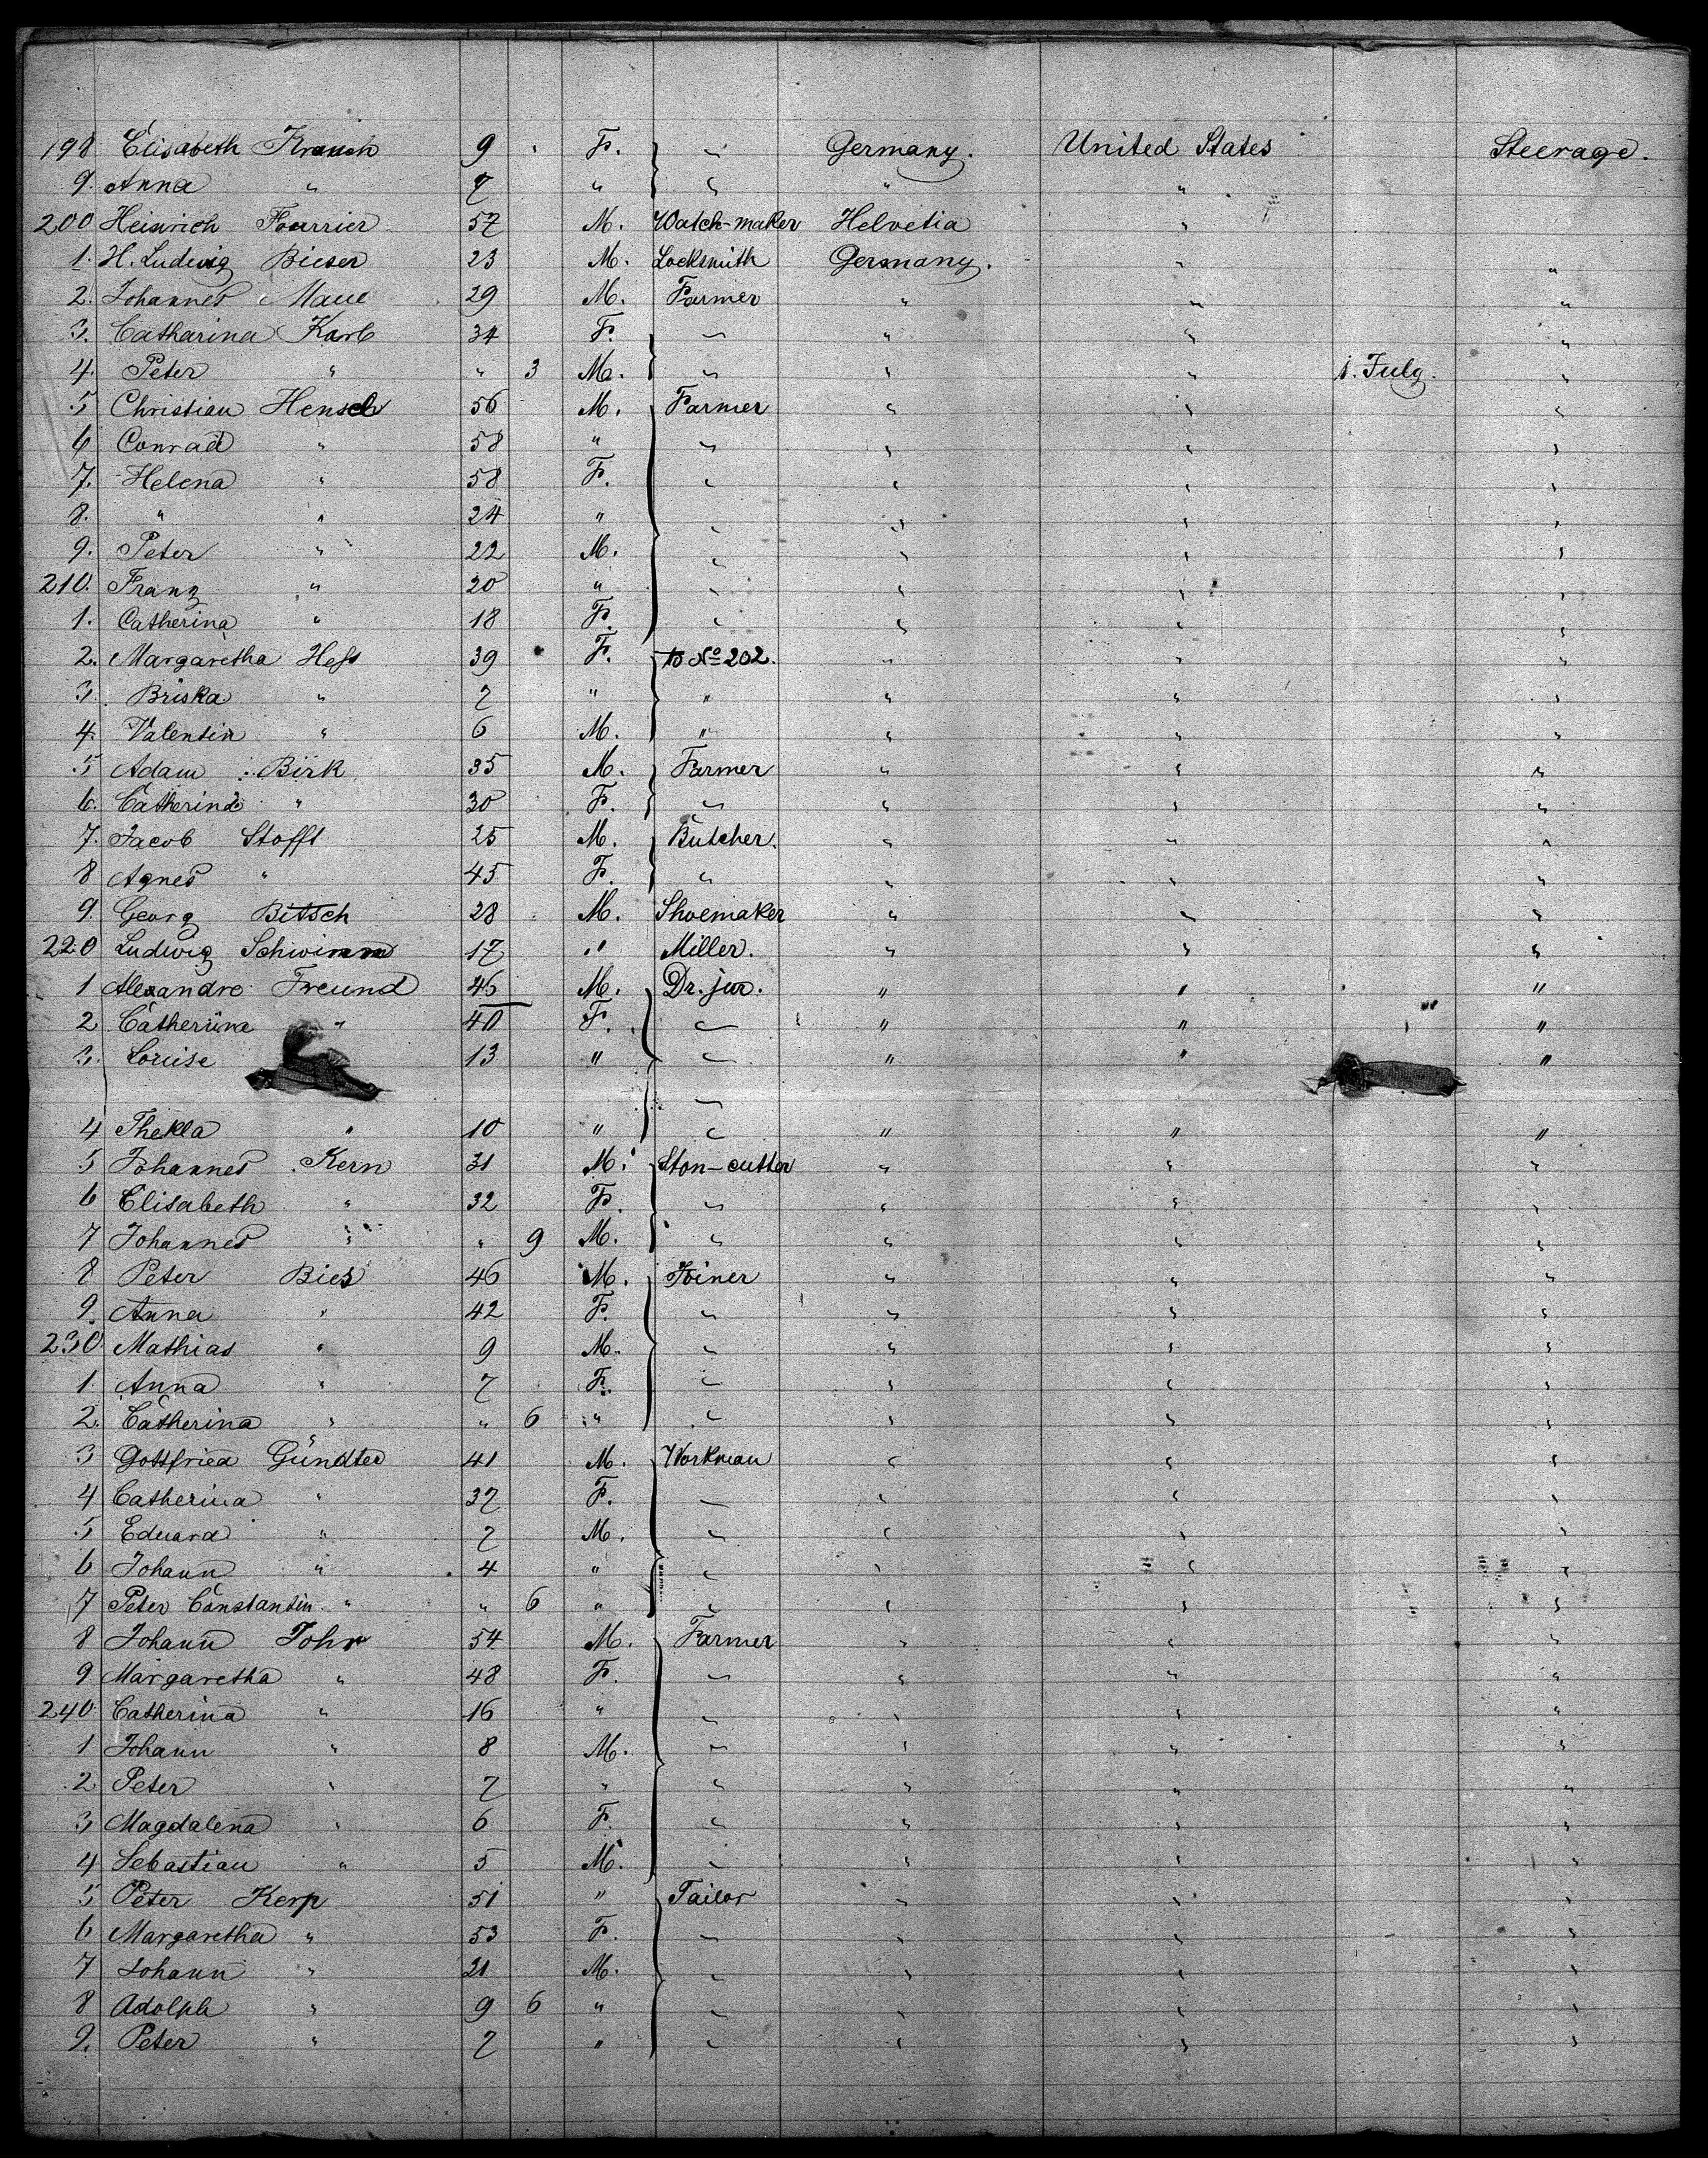 198 Elisabeth Krauch 9 F. " Germany. United States Steerage.
9. Anna " 7 " " " "
200 Heinrich Fourrier 57 M. Watch-maker Helvetia "
1. H. Ludwig Bieser 23 M. Locksmith Germany. " "
2. Johannes Maue 29 M. Farmer " " "
3. Catharina Karb 34 F. — " " "
4. Peter " " 3 M. " " " 1. July. "
5 Christian Hensel 56 M. Farmer " " "
6 Conrad " 58 " " " " "
7. Helena " 58 F. " " " "
8. " " 24 " " " " "
9. Peter " 22 M. " " " "
210. Franz " 20 " " " " "
1. Catherina " 18 F. " " " "
2. Margaretha Hess 39 F. to No 202. " " "
3. Briska " 7 " " " " "
4. Valentin " 6 M. " " " "
5 Adam Birk 35 M. Farmer " " "
6. Catherina " 30 F. " " " "
7. Jacob Stofft 25 M. Butcher. " " "
8 Agnes " 45 F. " " " "
9. Georg Bitsch 28 M. Shoemaker " " "
220 Ludwig Schwimm 17 " Miller. " " "
1 Alexandre Freund 46 M. Dr. jur. " " "
2 Catherina " 40 F. " " " "
3. Louise 13 " " " " "
4 Thekla " 10 " " " " "
5 Johannes Kern 31 M. Ston-cutter " " "
6 Elisabeth " 32 F. " " " "
7 Johannes " " 9 M. " " " "
8 Peter Bies 46 M. Joiner " " "
9. Anna " 42 F. " " " "
230 Mathias " 9 M. " " " "
1. Anna " 7 F. " " " "
2. Catherina " " 6 " " " " "
3 Gottfried Gündter 41 M. Workman " " "
4 Catherina " 37 F. — " " "
5 Eduard " 7 M. " " " "
6 Johann " 4 " " " " "
7 Peter Constantin " " 6 " " " " "
8 Johann Johr 54 M. Farmer " " "
9 Margaretha " 48 F. " " " "
240 Catherina " 16 " " " " "
1 Johann " 8 M. " " " "
2 Peter " 7 " " " " "
3 Magdalena " 6 F. " " " "
4 Sebastian " 5 M. " " " "
5 Peter Kerp 51 " Tailor " " "
6 Margaretha " 53 F. " " " "
7 Johann " 21 M. " " " "
8 Adolph " 9 6 " " " " "
9. Peter " 7 " " " " "